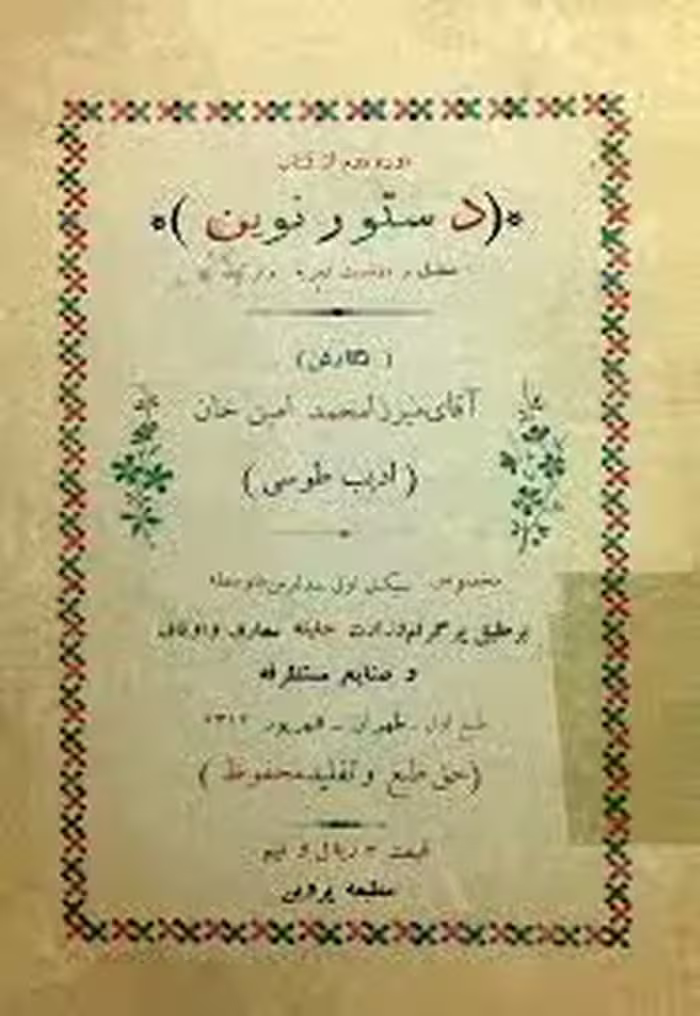 دوره دوم از کتاب
(دستور نوین)
(نگارش)
آقای میرزا محمد امین خان
(ادیب طوسی)
مخصوص سیکل اول مدارس متوسطه
بر طبق پرگرام وزارت جلیله معارف و اوقاف
و صنایع مستظرفه
طبع اول - طهران - شهریور ۱۳۱۲
(حق طبع و تقلید محفوظ)
قیمت ۳ ریال و نیم
مطبعه پروین